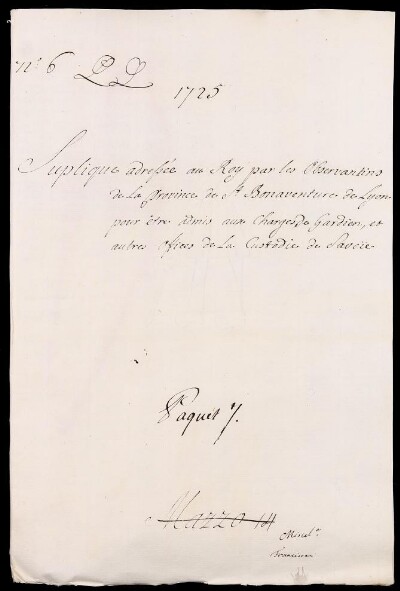 n.º 6
1725
Suplique adressée au Roy par les Observantins
de la Province de S.t Bonaventure de Lyon
pour être admis aux Charges de Gardien, et
autres ofices de la Custodie de Savoie
Paquet 7.
Mazzo 14